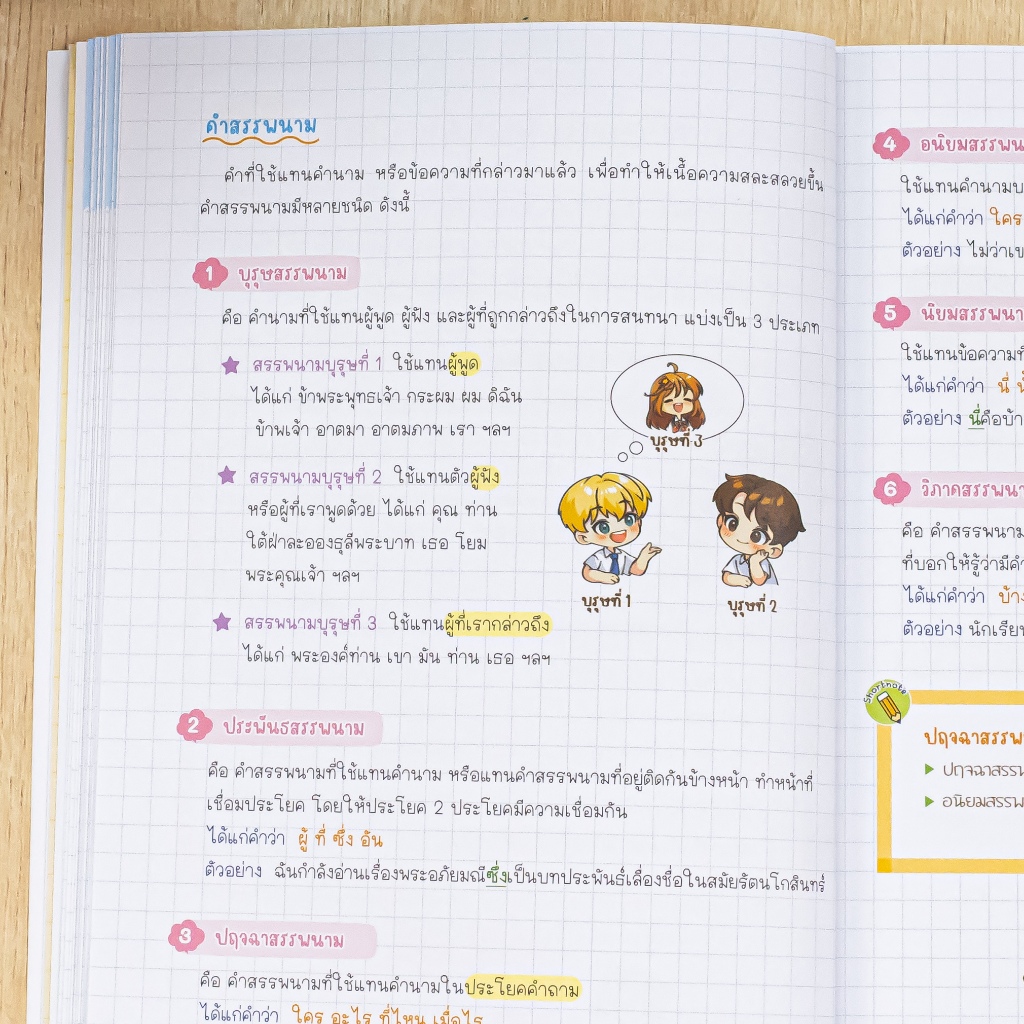 คำสรรพนาม
คำที่ใช้แทนคำนาม หรือข้อความที่กล่าวมาแล้ว เพื่อทำให้เนื้อความสละสลวยขึ้น
คำสรรพนามมีหลายชนิด ดังนี้
1 บุรุษสรรพนาม
คือ คำนามที่ใช้แทนผู้พูด ผู้ฟัง และผู้ที่ถูกกล่าวถึงในการสนทนา แบ่งเป็น 3 ประเภท
สรรพนามบุรุษที่ 1 ใช้แทนผู้พูด
ได้แก่ ข้าพระพุทธเจ้า กระผม ผม ดิฉัน
ข้าพเจ้า อาตมา อาตมภาพ เรา ฯลฯ
สรรพนามบุรุษที่ 2 ใช้แทนตัวผู้ฟัง
หรือผู้ที่เราพูดด้วย ได้แก่ คุณ ท่าน
ใต้ฝ่าละอองธุลีพระบาท เธอ โยม
พระคุณเจ้า ฯลฯ
สรรพนามบุรุษที่ 3 ใช้แทนผู้ที่เรากล่าวถึง
ได้แก่ พระองค์ท่าน เขา มัน ท่าน เธอ ฯลฯ
บุรุษที่ 3
บุรุษที่ 1
บุรุษที่ 2
2 ประพันธสรรพนาม
คือ คำสรรพนามที่ใช้แทนคำนาม หรือแทนคำสรรพนามที่อยู่ติดกันข้างหน้า ทำหน้าที่
เชื่อมประโยค โดยให้ประโยค 2 ประโยคมีความเชื่อมกัน
ได้แก่คำว่า ผู้ ที่ ซึ่ง อัน
ตัวอย่าง ฉันกำลังอ่านเรื่องพระอภัยมณีซึ่งเป็นบทประพันธ์เลื่องชื่อในสมัยรัตนโกสินทร์
3 ปฤจฉาสรรพนาม
คือ คำสรรพนามที่ใช้แทนคำนามในประโยคคำถาม
ได้แก่คำว่า ใคร อะไร ที่ไหน เมื่อไร
4 อนิยมสรรพน
ใช้แทนคำนามบ
ได้แก่คำว่า ใคร
ตัวอย่าง ไม่ว่าเข
5 นิยมสรรพนา
ใช้แทนข้อความที่
ได้แก่คำว่า นี่
ตัวอย่าง นี่คือบ้า
6 วิภาคสรรพนา
คือ คำสรรพนาม
ที่บอกให้รู้ว่ามีคำ
ได้แก่คำว่า บ้าง
ตัวอย่าง นักเรียน
Shortnote
ปฤจฉาสรรพ
ปฤจฉาสรรพ
อนิยมสรรพ